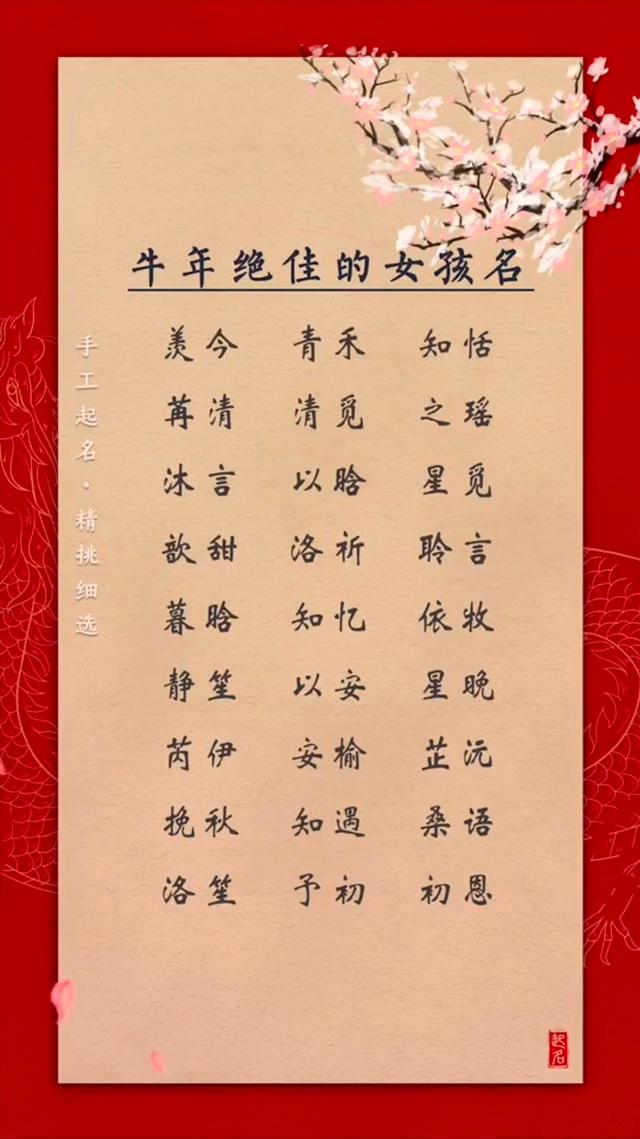 牛年绝佳的女孩名
羡今 青禾 知恬
苒清 清觅 之瑶
沐言 以晗 星觅
歆甜 洛祈 聆言
暮晗 知忆 依牧
静笙 以安 星晚
芮伊 安榆 芷沅
挽秋 知遇 桑语
洛笙 予初 初恩
手工起名·精挑细选
起名